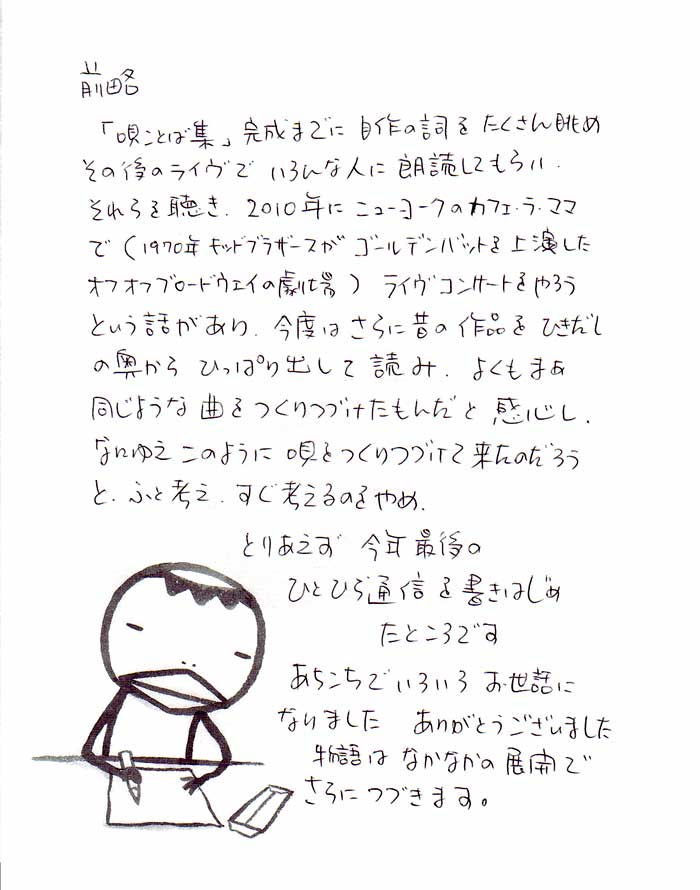 前略
「唄ことば集」完成までに 自作の詞を たくさん眺め
その後のライヴで いろんな人に 朗読してもらい.
それらを聴き. 2010年に ニューヨークのカフェ・ラ・ママ
で (1970年 キッドブラザースが ゴールデンバットを上演した
オフオフブロードウェイの劇場) ライヴコンサートをやろう
という話があり. 今度は さらに昔の 作品を ひきだし
の奥から ひっぱり出して 読み. よくもまぁ
同じような 曲を つくりつづけたもんだと 感心し.
なにゆえ このように 唄をつくりつづけて 来たのだろう
と. ふと考え. すぐ考えるのをやめ.
とりあえず 今年最後の
ひとひら通信を書きはじめ
たところです
あちこちで いろいろ お世話に
なりました ありがとうございました
物語は なかなかの 展開で
さらにつづきます。